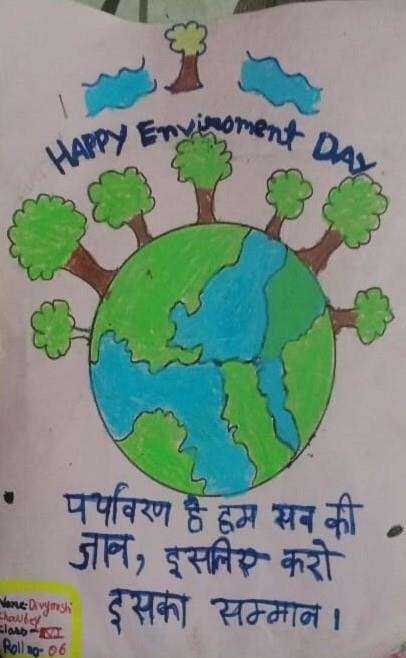 HAPPY Enviroment DAY
पर्यावरण है हम सब की
जान, इसलिए करो
इसका सम्मान।
Name-Divyanshi
Choubey
Class-VI
Roll no-06